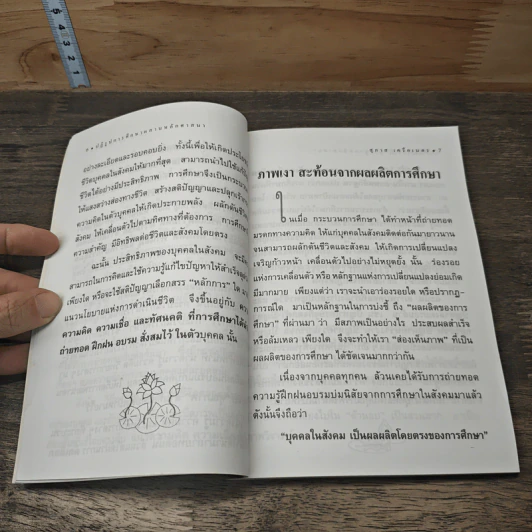 อย่างละเอียดและรอบคอบยิ่ง ทั้งนี้เพื่อให้เกิดประโยชน์
ชีวิตบุคคลในสังคมให้มากที่สุด สามารถนำไปใช้
ชีวิตได้อย่างมีประสิทธิภาพ การศึกษาจึงเป็นกระบวน
ให้แสงสว่างส่องทางชีวิต สร้างสติปัญญาและปลูก
ความคิดในตัวบุคคลให้เกิดประกายพลัง ผลักดันชีวิต
สังคม ให้เคลื่อนตัวไปตามทิศทางที่ต้องการ การศึกษา
ความสำคัญ มีอิทธิพลต่อชีวิตและสังคมโดยตรง
ฉะนั้น ประสิทธิภาพของบุคคลในสังคม จะมี
สามารถในการคิดและใช้ความรู้แก้ไขปัญหาให้สำเร็จลุล่วง
เพียงใด หรือจะใช้สติปัญญาเลือกสรร “หลักการ” ใด มา
แนวนโยบายแห่งการดำเนินชีวิต จึงขึ้นอยู่กับ
ความคิด ความเชื่อ และทัศนคติ ที่การศึกษาได้
ถ่ายทอด ฝึกฝน อบรม สั่งสมไว้ ในตัวบุคคล นั้น
7
ภาพเงา สะท้อนจากผลผลิตการศึกษา
ในเมื่อ กระบวนการศึกษา ได้ทำหน้าที่ถ่ายทอด
มรดกทางความคิด ให้แก่บุคคลในสังคมติดต่อกันมายาวนาน
จนสามารถผลักดันชีวิตและสังคม ให้เกิดการเปลี่ยนแปลง
เจริญก้าวหน้า เคลื่อนตัวไปอย่างไม่หยุดยั้ง นั้น ร่องรอย
แห่งการเคลื่อนตัว หรือ หลักฐานแห่งการเปลี่ยนแปลงย่อมเกิด
มีมากมาย เพียงแต่ว่า เราจะนำเอาร่องรอยใด หรือปรากฏ-
การณ์ใด มาเป็นหลักฐานในการบ่งชี้ ถึง “ผลผลิตของการ
ศึกษา” ที่ผ่านมา ว่า มีสภาพเป็นอย่างไร ประสบผลสำเร็จ
หรือล้มเหลว เพียงใด จึงจะทำให้เรา “ส่องเห็นภาพ” ที่เป็น
ผลผลิตของการศึกษา ได้ชัดเจนมากกว่ากัน
เนื่องจากบุคคลทุกคน ล้วนเคยได้รับการถ่ายทอด
ความรู้ฝึกฝนอบรมบ่มนิสัยจากการศึกษาในสังคมมาแล้ว
ดังนั้นจึงถือว่า
“บุคคลในสังคม เป็นผลผลิตโดยตรงของการศึกษา”
5
4
3
2
1